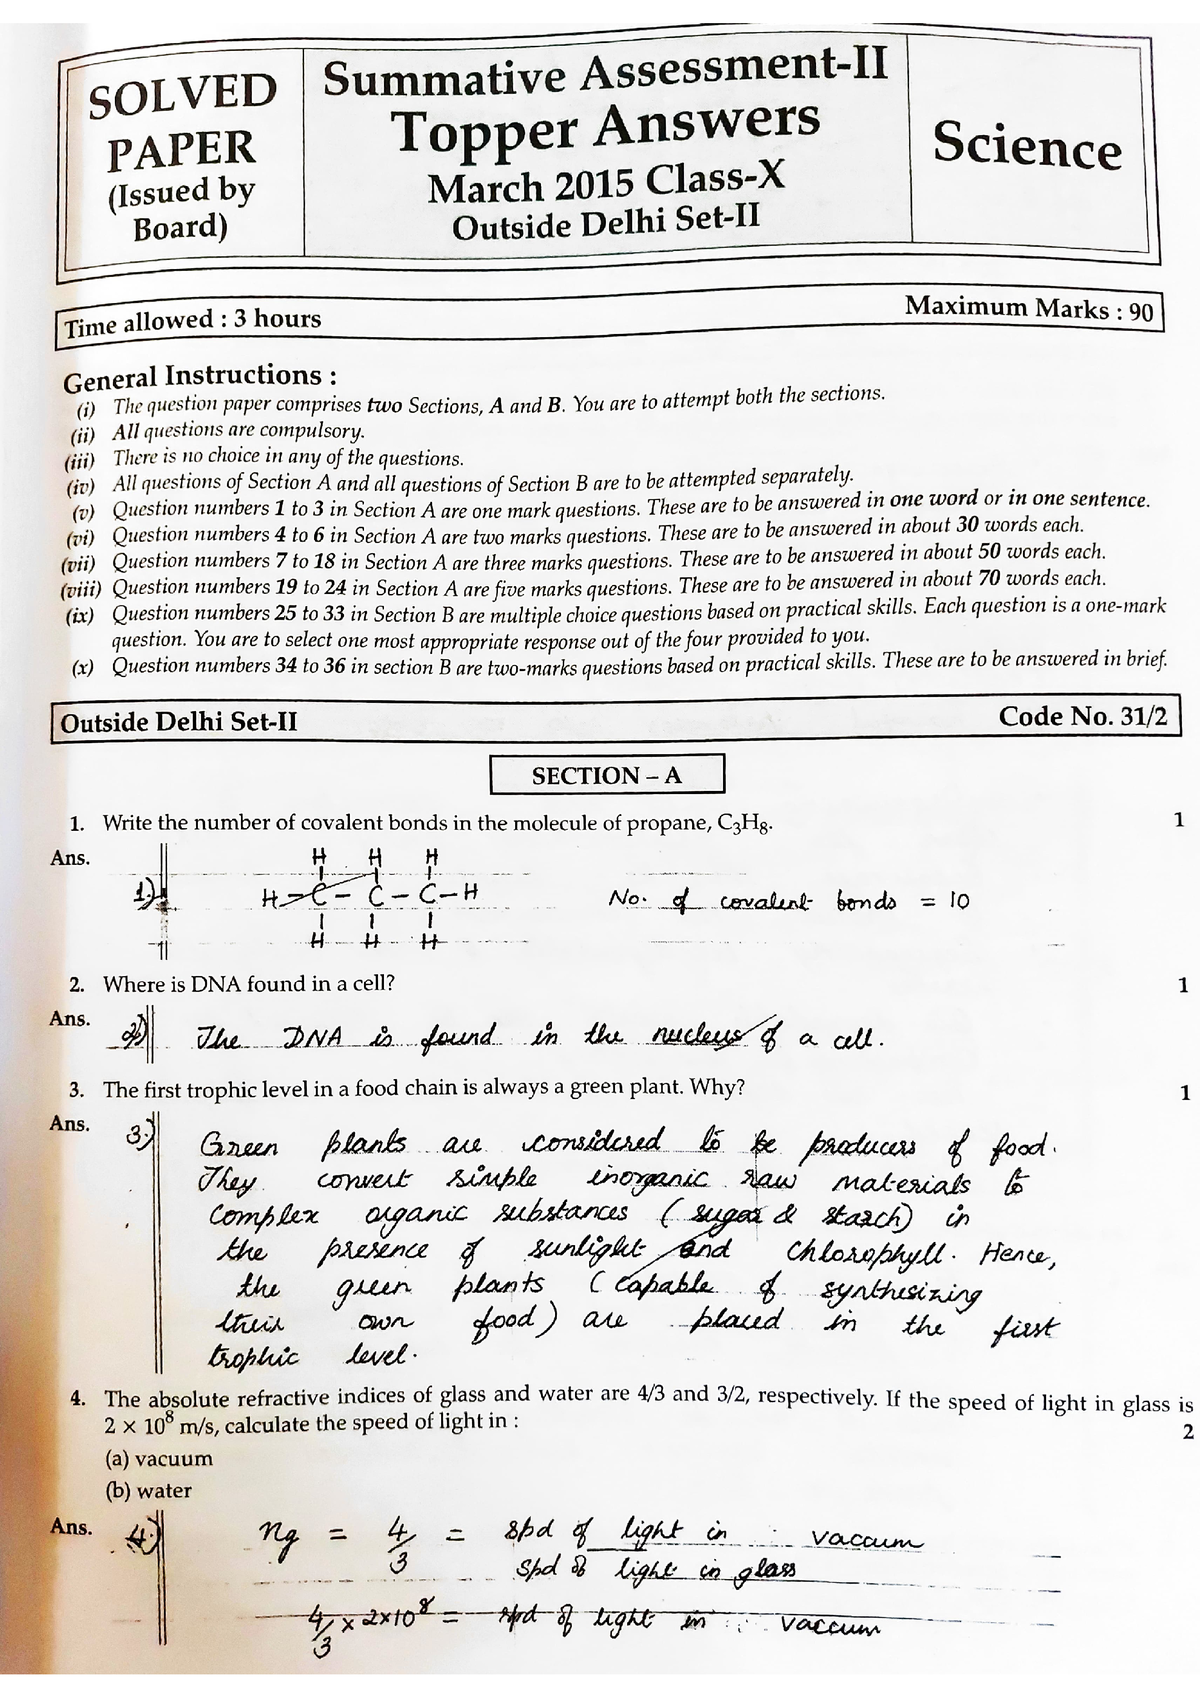 SOLVED
PAPER
(Issued by
Board)
Summative Assessment-II
Topper Answers
March 2015 Class-X
Outside Delhi Set-II
Science
Time allowed : 3 hours
Maximum Marks : 90
General Instructions :
(i) The question paper comprises two Sections, A and B. You are to attempt both the sections.
(ii) All questions are compulsory.
(iii) There is no choice in any of the questions.
(iv) All questions of Section A and all questions of Section B are to be attempted separately.
(v) Question numbers 1 to 3 in Section A are one mark questions. These are to be answered in one word or in one sentence.
(vi) Question numbers 4 to 6 in Section A are two marks questions. These are to be answered in about 30 words each.
(vii) Question numbers 7 to 18 in Section A are three marks questions. These are to be answered in about 50 words each.
(viii) Question numbers 19 to 24 in Section A are five marks questions. These are to be answered in about 70 words each.
(ix) Question numbers 25 to 33 in Section B are multiple choice questions based on practical skills. Each question is a one-mark
question. You are to select one most appropriate response out of the four provided to you.
(x) Question numbers 34 to 36 in section B are two-marks questions based on practical skills. These are to be answered in brief.
Outside Delhi Set-II
Code No. 31/2
SECTION – A
1. Write the number of covalent bonds in the molecule of propane, C₃H₈. 1
Ans.
1.)
H H H
H – C – C – C – H
H H H
No. of covalent bonds = 10
2. Where is DNA found in a cell? 1
Ans. 2) The DNA is found in the nucleus of a cell.
3. The first trophic level in a food chain is always a green plant. Why? 1
Ans. 3.) Green plants are considered to be producers of food.
They convert simple inorganic raw materials to
complex organic substances (sugar & starch) in
the presence of sunlight and chlorophyll. Hence,
the green plants (capable of synthesizing
their own food) are placed in the first
trophic level.
4. The absolute refractive indices of glass and water are 4/3 and 3/2, respectively. If the speed of light in glass is
2 × 10⁸ m/s, calculate the speed of light in : 2
(a) vacuum
(b) water
Ans. 4.) ng = 4/3 = spd of light in vaccum
spd of light in glass
4/3 × 2×10⁸ = spd of light in vaccum